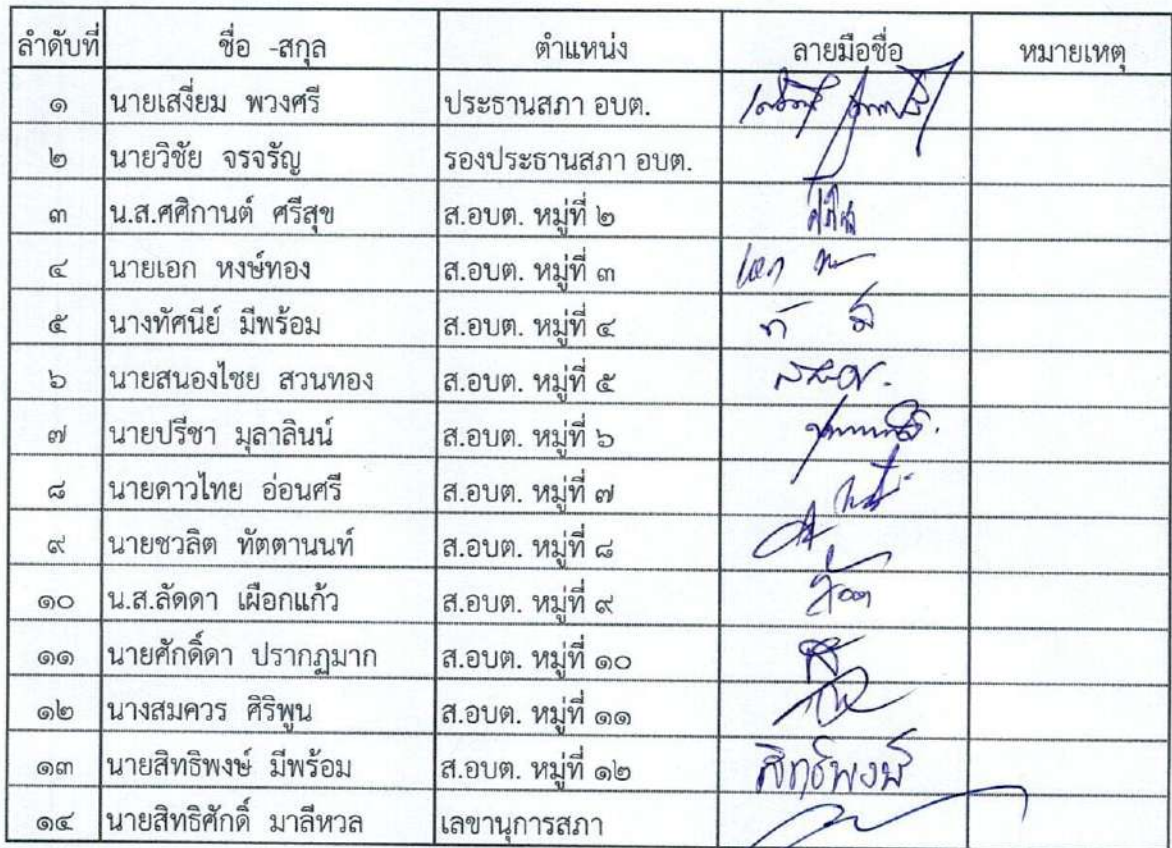 ลำดับที่ ชื่อ -สกุล ตำแหน่ง ลายมือชื่อ หมายเหตุ
๑ นายเสงี่ยม พวงศรี ประธานสภา อบต.
๒ นายวิชัย จรจรัญ รองประธานสภา อบต.
๓ น.ส.ศศิกานต์ ศรีสุข ส.อบต. หมู่ที่ ๒
๔ นายเอก หงษ์ทอง ส.อบต. หมู่ที่ ๓ เอก
๕ นางทัศนีย์ มีพร้อม ส.อบต. หมู่ที่ ๔
๖ นายสนองไชย สวนทอง ส.อบต. หมู่ที่ ๕
๗ นายปรีชา มุลาลินน์ ส.อบต. หมู่ที่ ๖
๘ นายดาวไทย อ่อนศรี ส.อบต. หมู่ที่ ๗
๙ นายชวลิต ทัตตานนท์ ส.อบต. หมู่ที่ ๘
๑๐ น.ส.ลัดดา เผือกแก้ว ส.อบต. หมู่ที่ ๙
๑๑ นายศักดิ์ดา ปรากฏมาก ส.อบต. หมู่ที่ ๑๐
๑๒ นางสมควร ศิริพูน ส.อบต. หมู่ที่ ๑๑
๑๓ นายสิทธิพงษ์ มีพร้อม ส.อบต. หมู่ที่ ๑๒ สิทธิพงษ์
๑๔ นายสิทธิศักดิ์ มาลีหวล เลขานุการสภา